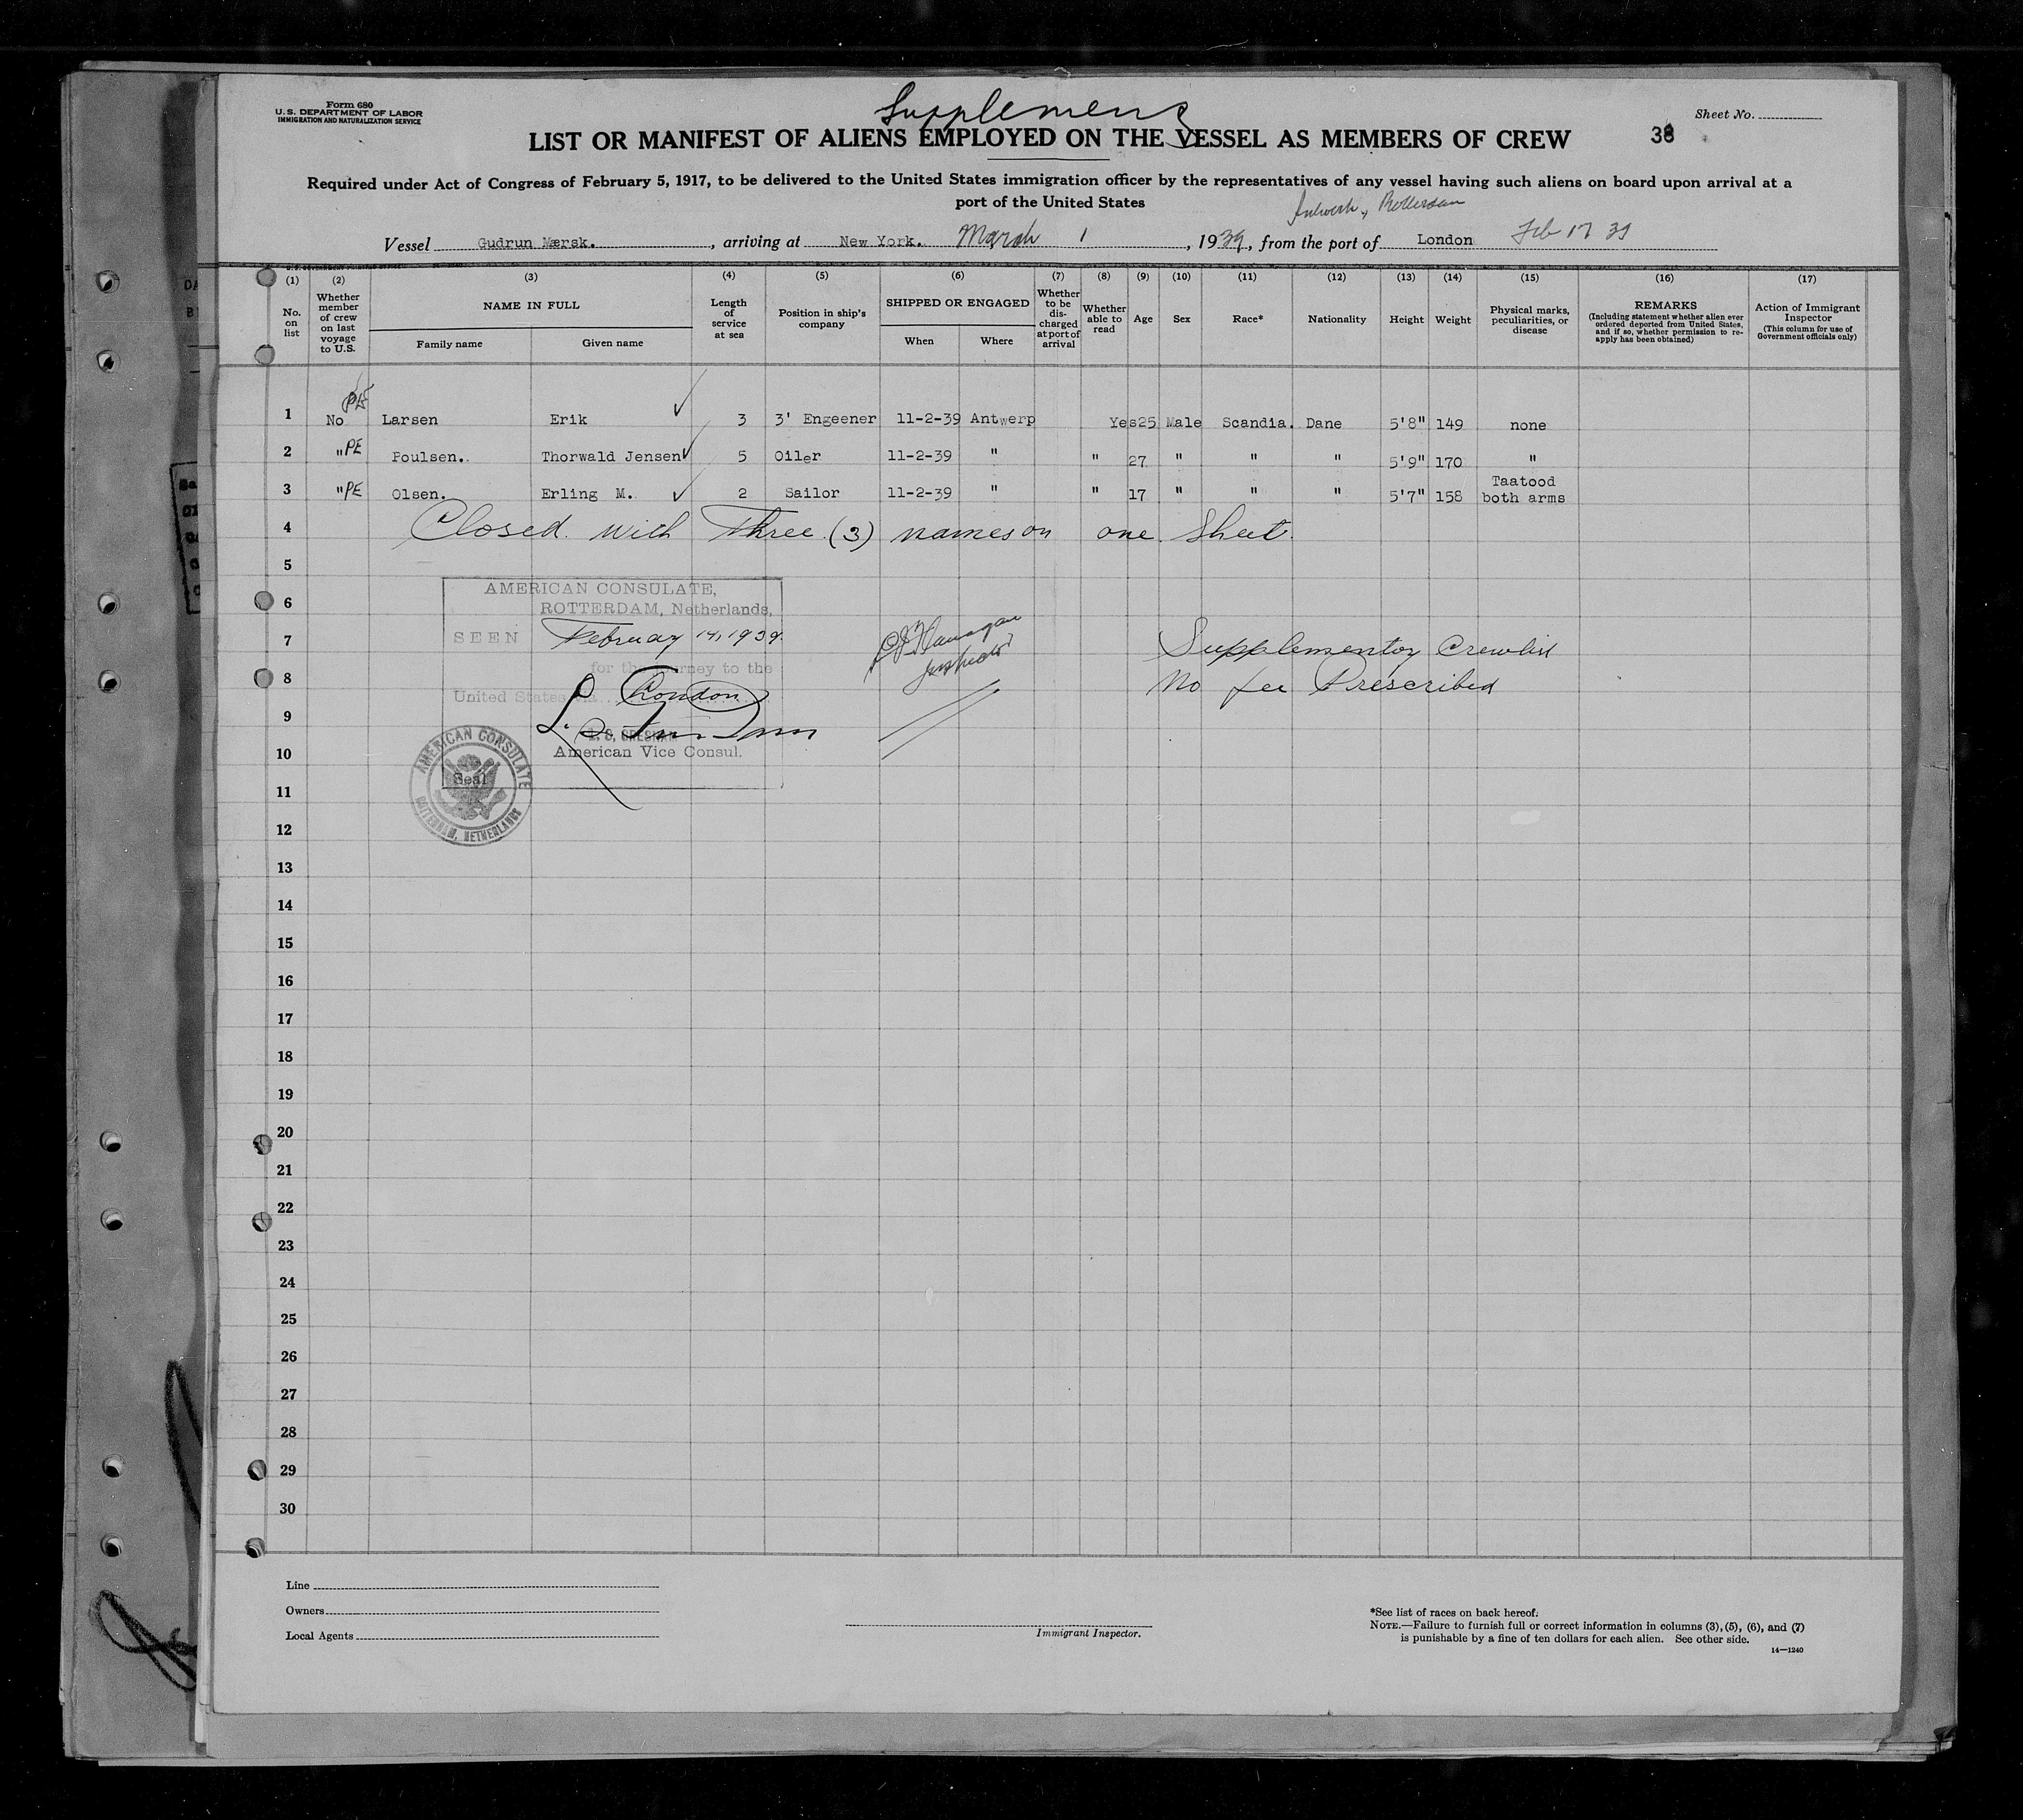 Form 680
U. S. DEPARTMENT OF LABOR
IMMIGRATION AND NATURALIZATION SERVICE
Supplement
Sheet No.
LIST OR MANIFEST OF ALIENS EMPLOYED ON THE VESSEL AS MEMBERS OF CREW
38
Required under Act of Congress of February 5, 1917, to be delivered to the United States immigration officer by the representatives of any vessel having such aliens on board upon arrival at a
port of the United States
Antwerp, Rotterdam
Vessel Gudrun Mærsk. , arriving at New York. March 1 , 1939, from the port of London Feb 17 39
(1) (2) (3) (4) (5) (6) (7) (8) (9) (10) (11) (12) (13) (14) (15) (16) (17)
No. on list
Whether member of crew on last voyage to U.S.
NAME IN FULL
Family name
Given name
Length of service at sea
Position in ship's company
SHIPPED OR ENGAGED
When
Where
Whether to be discharged at port of arrival
Whether able to read
Age
Sex
Race*
Nationality
Height
Weight
Physical marks, peculiarities, or disease
REMARKS
(Including statement whether alien ever ordered deported from United States, and if so, whether permission to reapply has been obtained)
Action of Immigrant Inspector
(This column for use of Government officials only)
1 No PE Larsen Erik 3 3' Engeener 11-2-39 Antwerp Yes 25 Male Scandia. Dane 5'8" 149 none
2 " PE Poulsen. Thorwald Jensen 5 Oiler 11-2-39 " " 27 " " " 5'9" 170 "
3 " PE Olsen. Erling M. 2 Sailor 11-2-39 " " 17 " " " 5'7" 158 Taatood both arms
4 Closed with Three (3) names on one sheet.
5
AMERICAN CONSULATE,
6 ROTTERDAM, Netherlands,
7 SEEN February 14, 1939.
Supplementory Crewlist
for the journey to the
8 No fee Prescribed
Inspector
United States via London
9
10 American Vice Consul.
Seal
AMERICAN CONSULATE
ROTTERDAM, NETHERLANDS
11
12
13
14
15
16
17
18
19
20
21
22
23
24
25
26
27
28
29
30
Line
Owners
Local Agents
Immigrant Inspector.
*See list of races on back hereof.
NOTE.—Failure to furnish full or correct information in columns (3), (5), (6), and (7)
is punishable by a fine of ten dollars for each alien. See other side.
14—1240